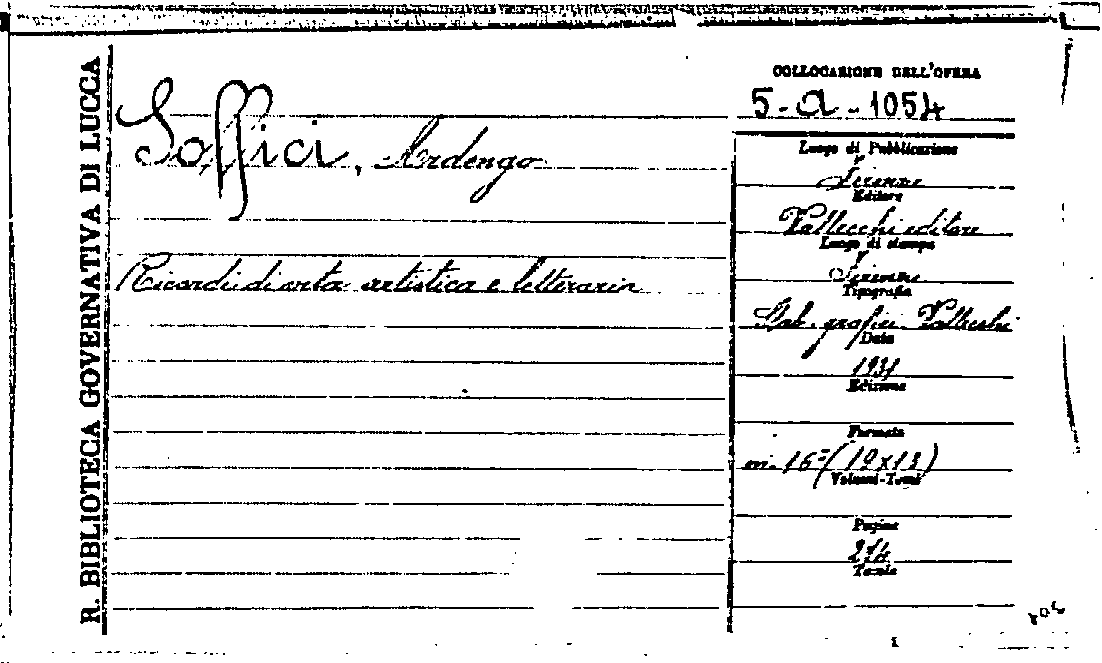 R. BIBLIOTECA GOVERNATIVA DI LUCCA
Soffici, Ardengo
Ricordi di vita artistica e letteraria
COLLOCAZIONE DELL'OPERA
5-a-1054
Luogo di Pubblicazione
Firenze
Editore
Vallecchi editore
Luogo di stampa
Firenze
Tipografia
Stab. grafici Vallecchi
Data
1931
Edizione
Formato
in-16° (19x13)
Volumi-Tomi
Pagine
214
Tavole